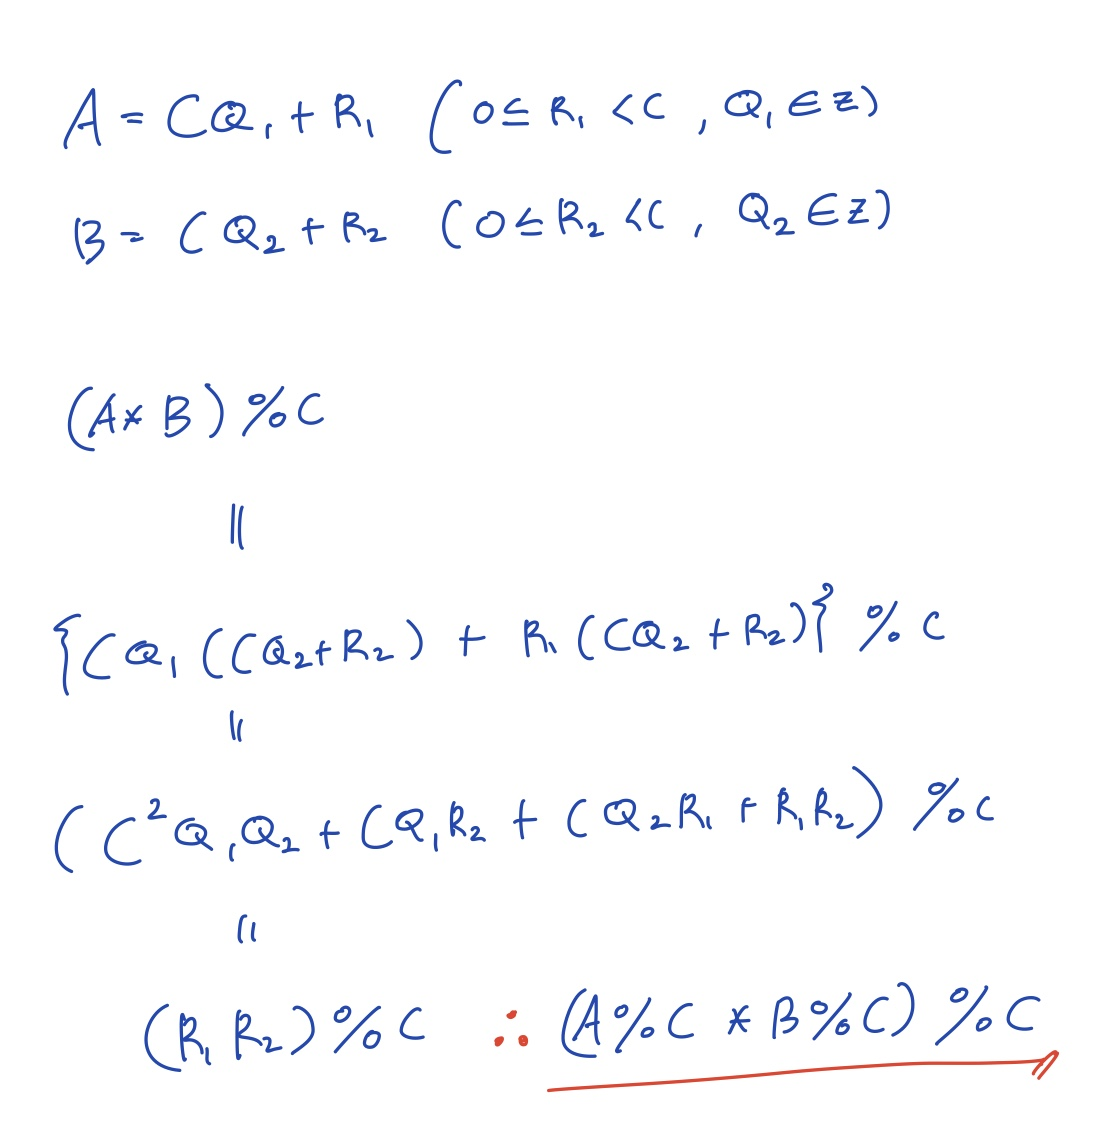 A = CQ₁ + R₁ (0 ≤ R₁ < C , Q₁ ∈ Z)
B = CQ₂ + R₂ (0 ≤ R₂ < C , Q₂ ∈ Z)
(A * B) % C
||
{CQ₁ (CQ₂ + R₂) + R₁ (CQ₂ + R₂)} % C
||
(C²Q₁Q₂ + CQ₁R₂ + CQ₂R₁ + R₁R₂) % C
||
(R₁ R₂) % C ∴ (A % C * B % C) % C